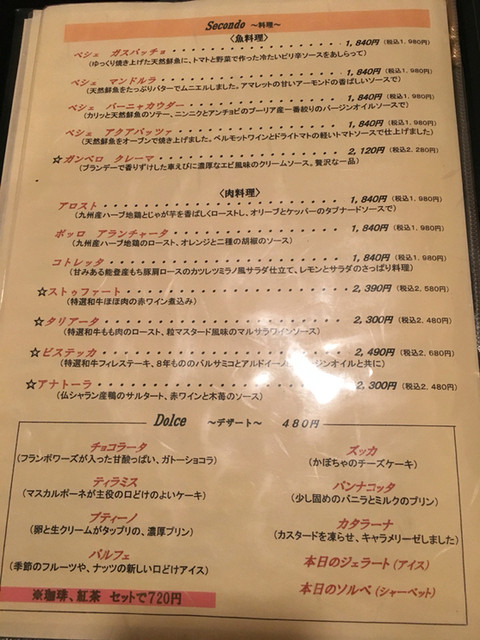 Secondo ～料理～
〈魚料理〉
ペシェ ガスパッチョ ・・・・・・・・・・・・・・・・ 1,840円 (税込1,980円)
(ゆっくり焼き上げた天然鮮魚に、トマトと野菜で作った冷たいピリ辛ソースをあしらって)
ペシェ マンドルラ ・・・・・・・・・・・・・・・・ 1,840円 (税込1,980円)
(天然鮮魚をたっぷりバターでムニエルしました。アマレットの甘いアーモンドの香ばしいソースで)
ペシェ バーニャカウダー ・・・・・・・・・・・・・ 1,840円 (税込1,980円)
(カリッと天然鮮魚のソテー、ニンニクとアンチョビのプーリア産一番絞りのバージンオイルソースで)
ペシェ アクアパッツァ ・・・・・・・・・・・・・・ 1,840円 (税込1,980円)
(天然鮮魚をオーブンで焼き上げました。ベルモットワインとドライトマトの軽いトマトソースで仕上げました)
☆ガンベロ クレーマ ・・・・・・・・・・・・・・・ 2,120円 (税込2,280円)
(ブランデーで香りずけした車えびに濃厚なエビ風味のクリームソース。贅沢な一品)
〈肉料理〉
アロスト ・・・・・・・・・・・・・・・・・・・・ 1,840円 (税込1,980円)
(九州産ハーブ地鶏とじゃが芋を香ばしくローストし、オリーブとケッパーのタプナードソースで)
ポッロ アランチャータ ・・・・・・・・・・・・・・ 1,840円 (税込1,980円)
(九州産ハーブ地鶏のロースト、オレンジと二種の胡椒のソース)
コトレッタ ・・・・・・・・・・・・・・・・・・・ 1,840円 (税込1,980円)
(甘みある能登産もち豚肩ロースのカツレツミラノ風サラダ仕立て、レモンとサラダのさっぱり料理)
☆ストゥファート ・・・・・・・・・・・・・・・・・ 2,390円 (税込2,580円)
(特選和牛ほほ肉の赤ワイン煮込み)
☆タリアータ ・・・・・・・・・・・・・・・・・・・ 2,300円 (税込2,480円)
(特選和牛もも肉のロースト、粒マスタード風味のマルサラワインソース)
☆ビステッカ ・・・・・・・・・・・・・・・・・・・ 2,490円 (税込2,680円)
(特選和牛フィレステーキ、8年もののバルサミコとアルドイーノ
ジンオイルと共に)
☆アナトーラ ・・・・・・・・・・・・・・・・・・・ 2,300円 (税込2,480円)
(仏シャラン産鴨のサルタート、赤ワインと木苺のソース)
Dolce ～デザート～ 480円
チョコラータ
(フランボワーズが入った甘酸っぱい、ガトーショコラ)
ティラミス
(マスカルポーネが主役の口どけのよいケーキ)
ブディーノ
(卵と生クリームがタップリの、濃厚プリン)
パルフェ
(季節のフルーツや、ナッツの新しい口どけアイス)
※珈琲、紅茶 セットで720円
ズッカ
(かぼちゃのチーズケーキ)
パンナコッタ
(少し固めのバニラとミルクのプリン)
カタラーナ
(カスタードを凍らせ、キャラメリーゼしました)
本日のジェラート (アイス)
本日のソルベ (シャーベット)